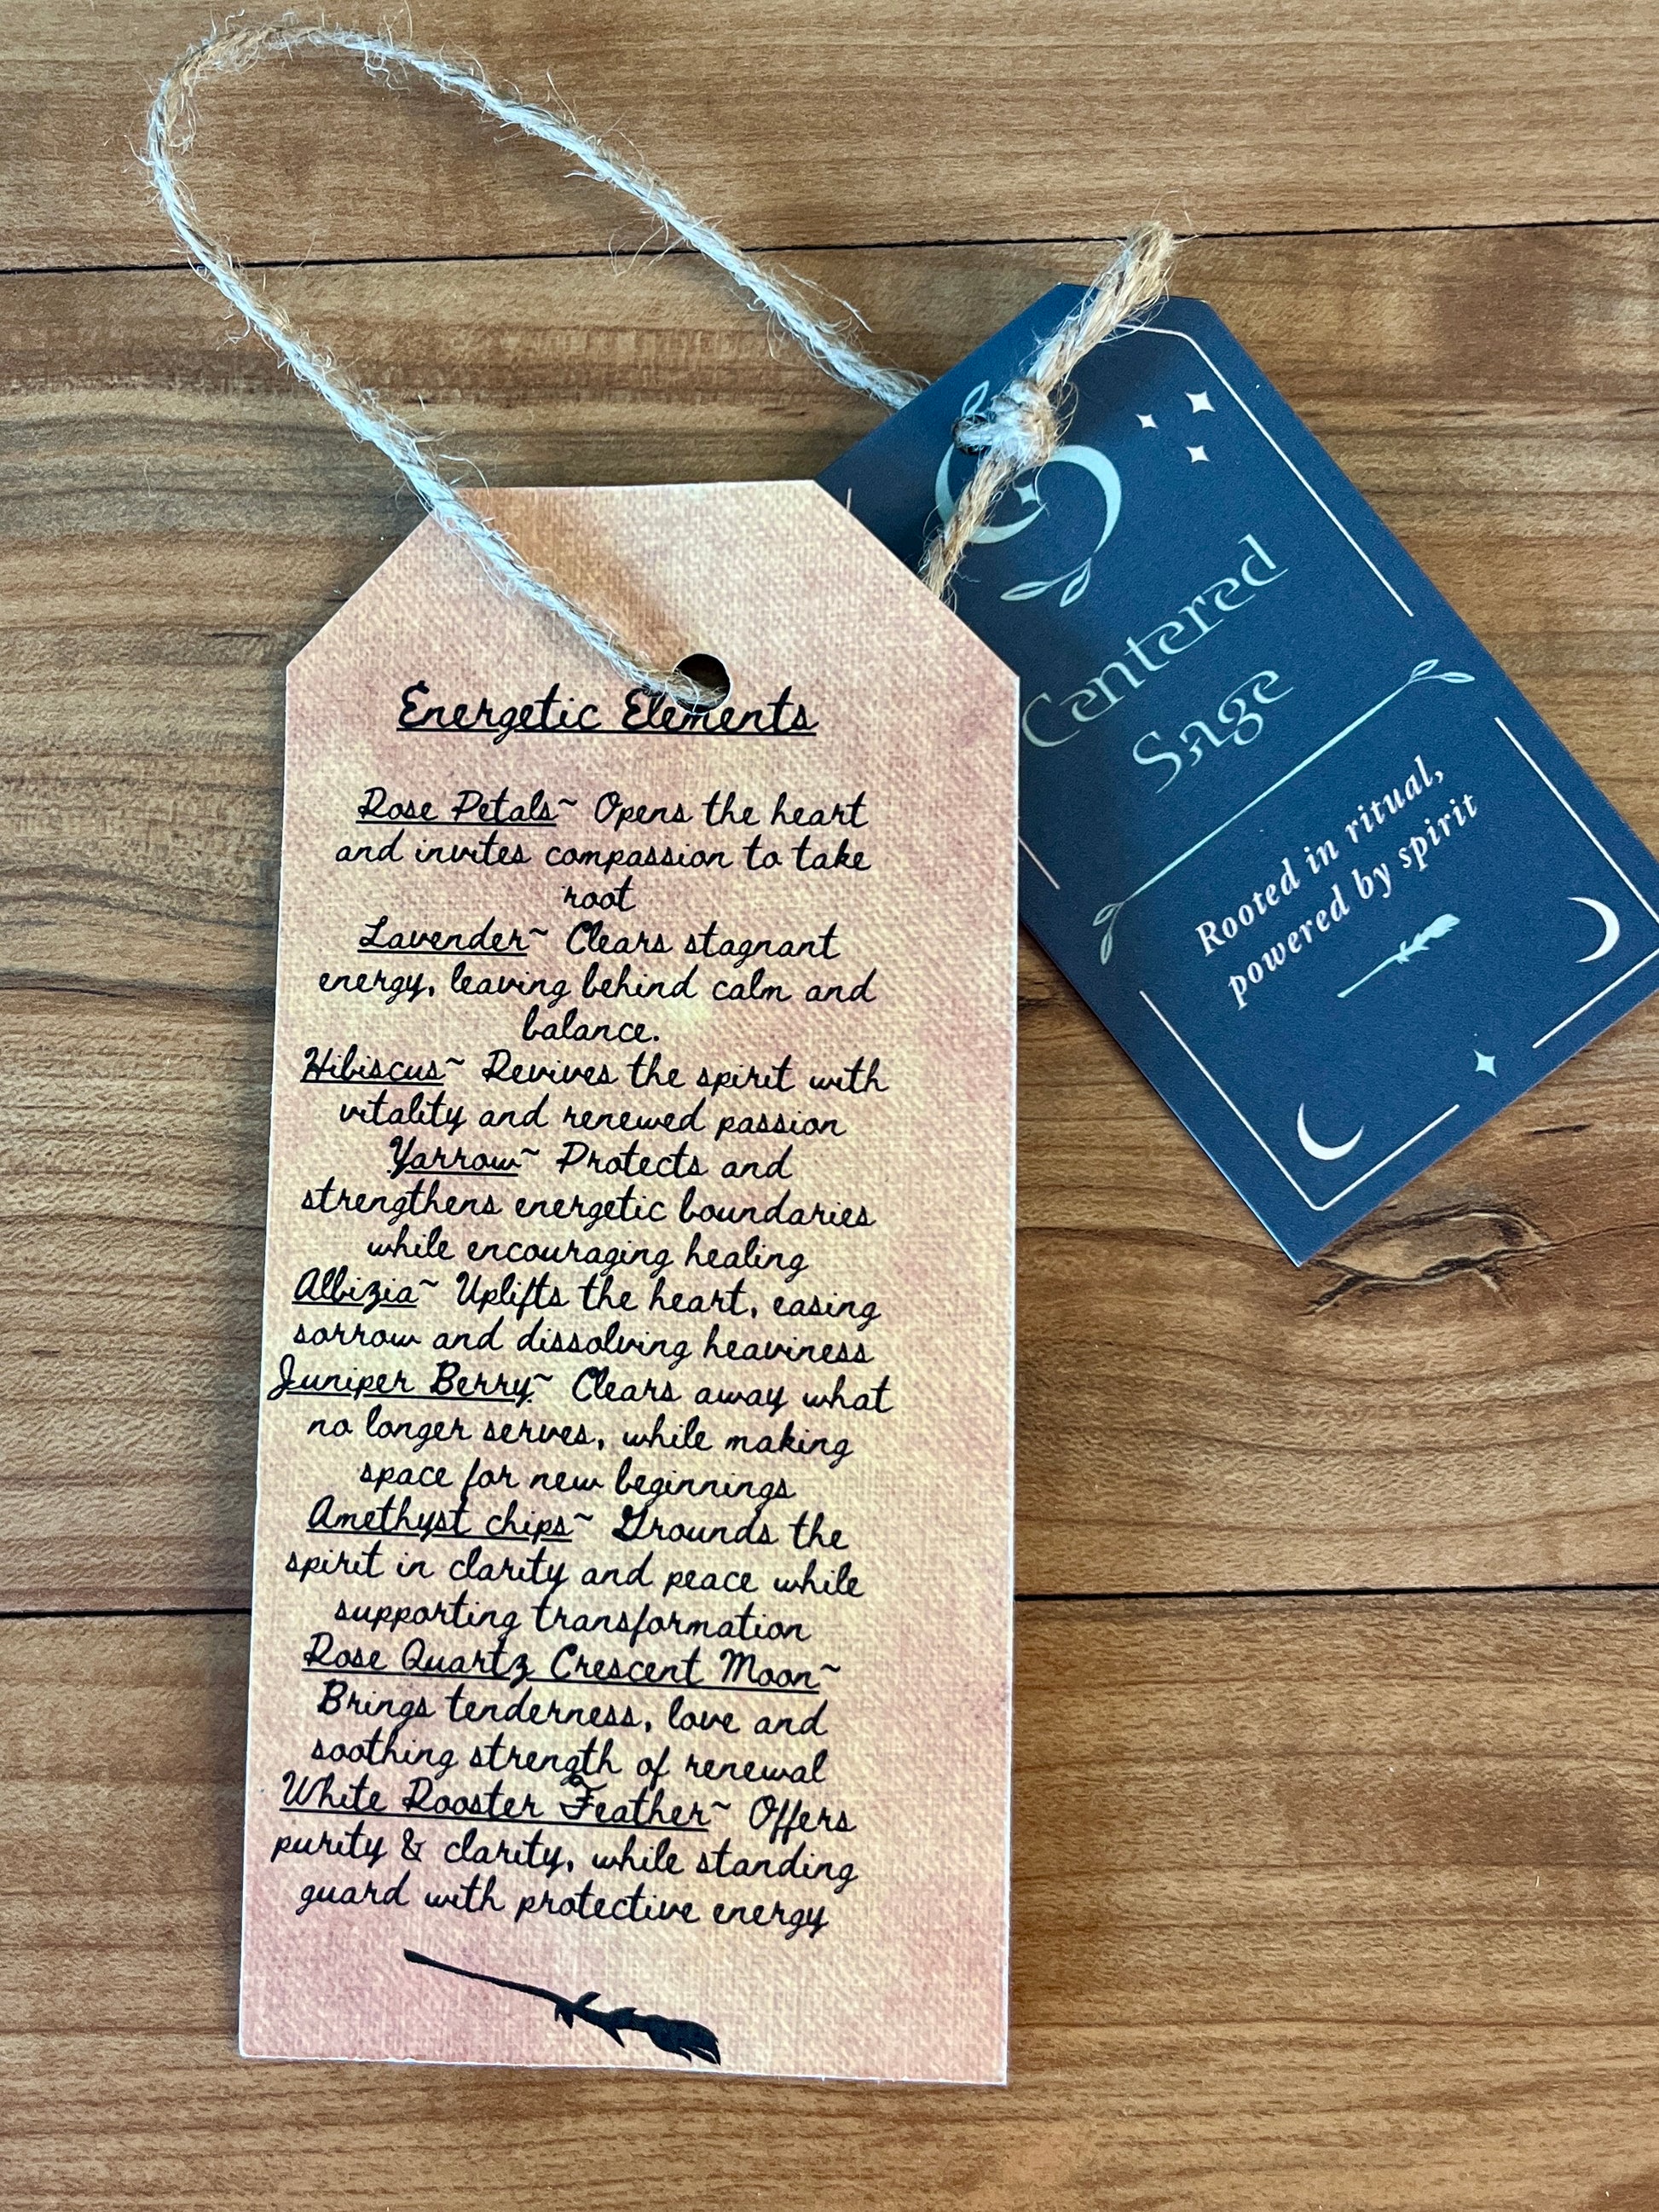 Energetic Elements
Rose Petals~ Opens the heart
and invites compassion to take
root
Lavender~ Clears stagnant
energy, leaving behind calm and
balance.
Hibiscus~ Revives the spirit with
vitality and renewed passion
Yarrow~ Protects and
strengthens energetic boundaries
while encouraging healing
Albizia~ Uplifts the heart, easing
sorrow and dissolving heaviness
Juniper Berry~ Clears away what
no longer serves, while making
space for new beginnings
Amethyst chips~ Grounds the
spirit in clarity and peace while
supporting transformation
Rose Quartz Crescent Moon~
Brings tenderness, love and
soothing strength of renewal
White Rooster Feather~ Offers
purity & clarity, while standing
guard with protective energy
Centered
Sage
Rooted in ritual,
powered by spirit